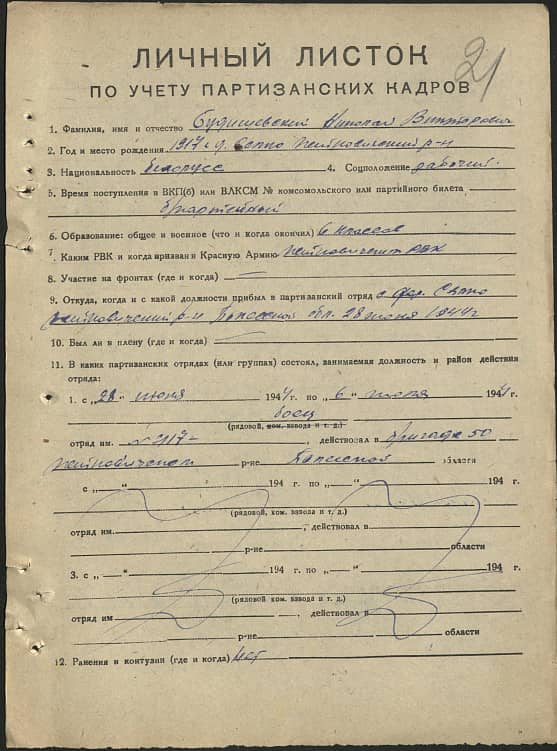 21
ЛИЧНЫЙ ЛИСТОК
ПО УЧЕТУ ПАРТИЗАНСКИХ КАДРОВ
1. Фамилия, имя и отчество Николай Викторович
2. Год и место рождения 1917 г. д. Житковичский р-н
3. Национальность белорусс 4. Соцположение рабочий.
5. Время поступления в ВКП(б) или ВЛКСМ № комсомольского или партийного билета
б/партейный
6. Образование: общее и военное (что и когда окончил) классов
7. Каким РВК и когда призван в Красную Армию Житковичским РВК
8. Участие на фронтах (где и когда) —
9. Откуда, когда и с какой должности прибыл в партизанский отряд с дер.
Житковичский р-н Полесской обл. 28 июня 1944 г
10. Был ли в плену (где и когда) —
11. В каких партизанских отрядах (или группах) состоял, занимаемая должность и район действия
отряда:
1. с „28" июня 1944 г. по „6" июля 1944 г.
боец
(рядовой, ком. взвода и т. д.)
отряд им. № 217 —, действовал в бригада 50
Житковичском р-не Полесской области
с „—" 194 г. по „—" 194 г.
(рядовой, ком. взвода и т. д.)
отряд им. , действовал в
р-не области
3. с „—" 194 г. по „—" 194 г.
(рядовой, ком. взвода и т. д.)
отряд им , действовал в
р-не области
12. Ранения и контузии (где и когда) нет